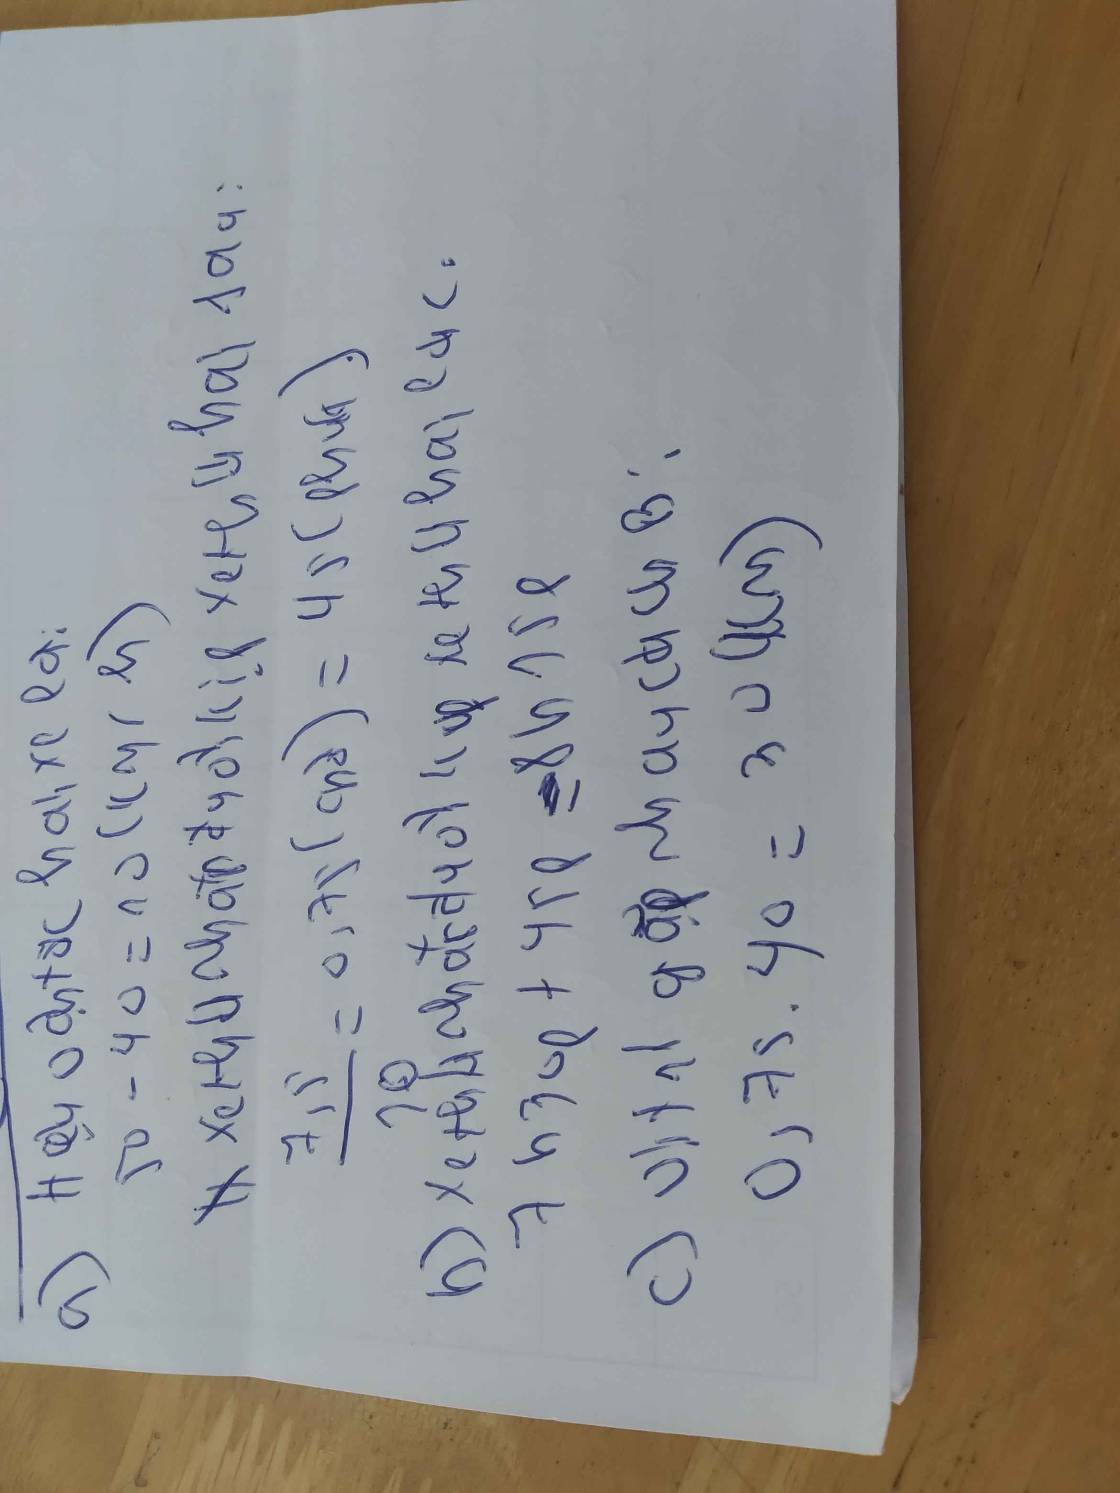 a) Hiệu vận tốc hai xe là:
50 - 40 = 10 (km/h)
Xe thứ nhất đuổi kịp xe thứ hai sau:
7,5
10
= 0,75 (giờ) = 45 (phút).
b) Xe thứ nhất đuổi kịp xe thứ hai lúc.
7h30p + 45p = 8h15p
c) Vị trí gặp nhau cách B:
0,75 . 40 = 30 (km)